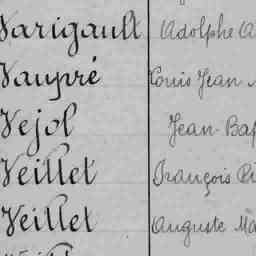 Varigault Adolphe A
Vaupré Louis Jean
Vejol Jean Bap
Veillet François
Veillet Auguste Ma